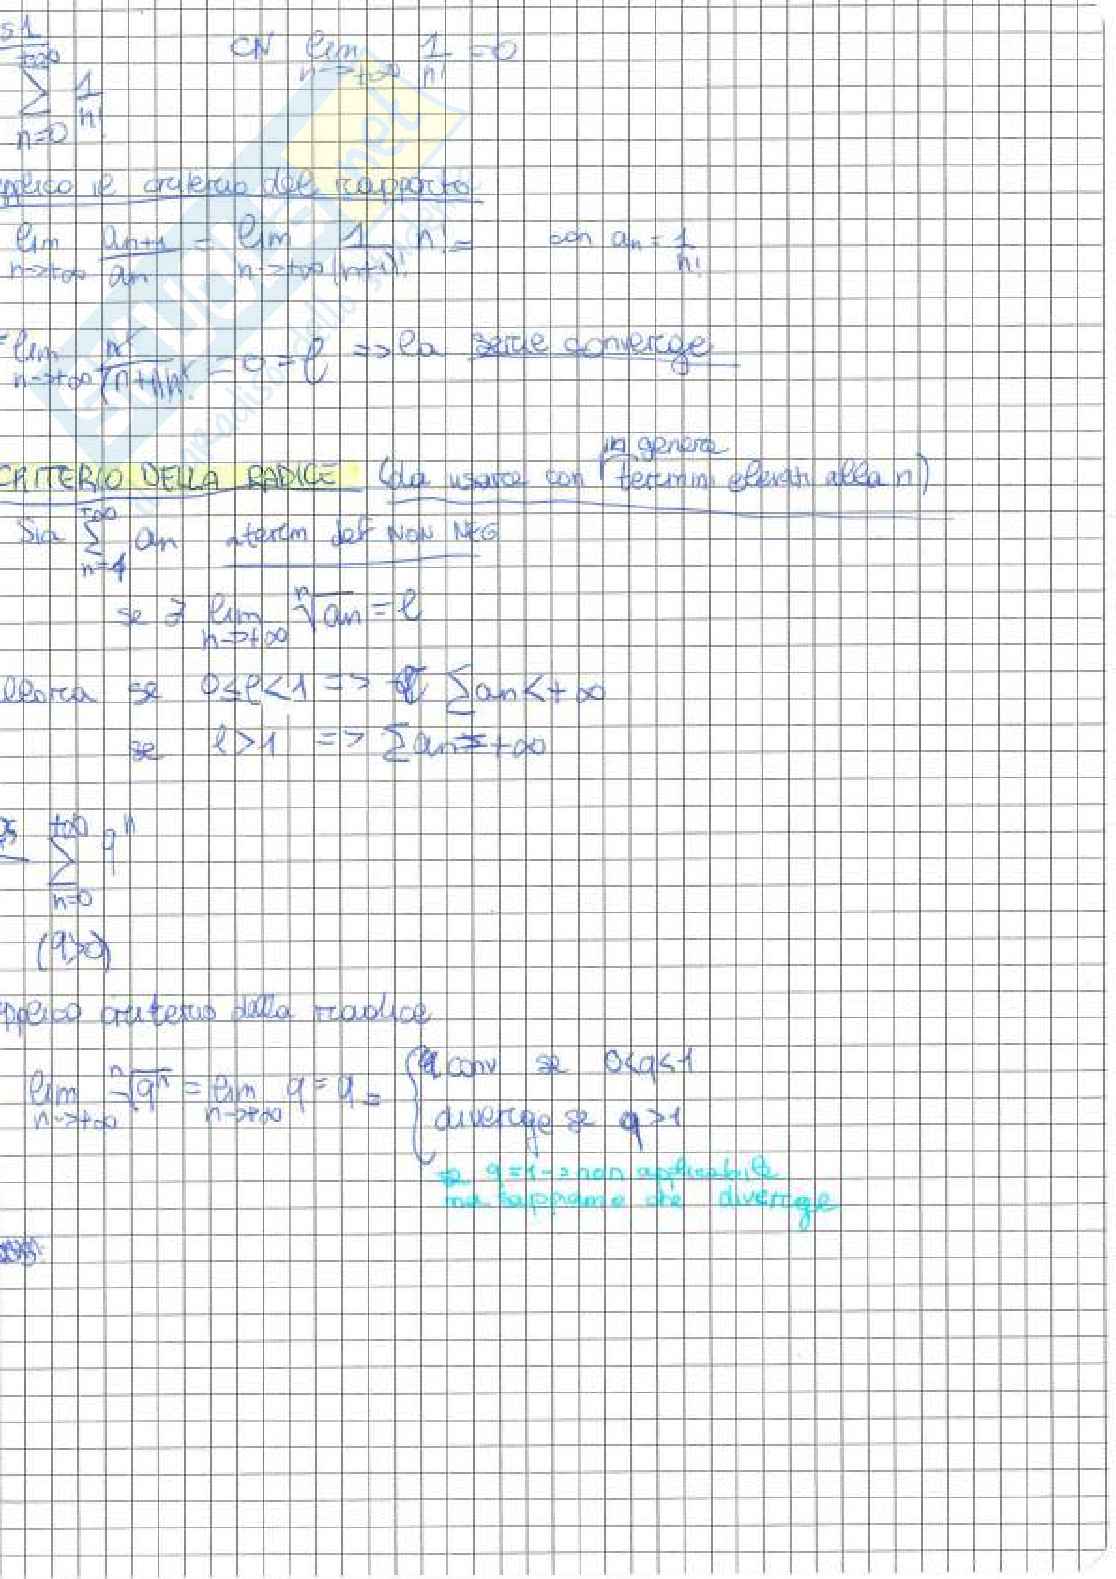 s 1
+∞
∑ 1/n!
n=0
CN lim 1/n! = 0
n->+∞
pplico il criterio del rapporto
lim an+1/an = lim 1/(n+1)! n! = con an = 1/n!
n->+∞ n->+∞
= lim n!/(n+1)n! = 0 = l => la serie converge
n->+∞
CRITERIO DELLA RADICE (da usare con in genere termini elevati alla n)
+∞
Sia ∑ an a term def NON NEG
n=1
se ∃ lim ⁿ√an = l
n->+∞
llora se 0≤l<1 => ∑an<+∞
se l>1 => ∑an=+∞
es +∞
∑ qⁿ
n=0
(q>0)
pplico criterio della radice
lim ⁿ√qⁿ = lim q = q = { conv se 0<q<1
n->+∞ n->+∞
diverge se q>1
se q=1 -> non applicabile
ma sappiamo che diverge
STUDENTI.net